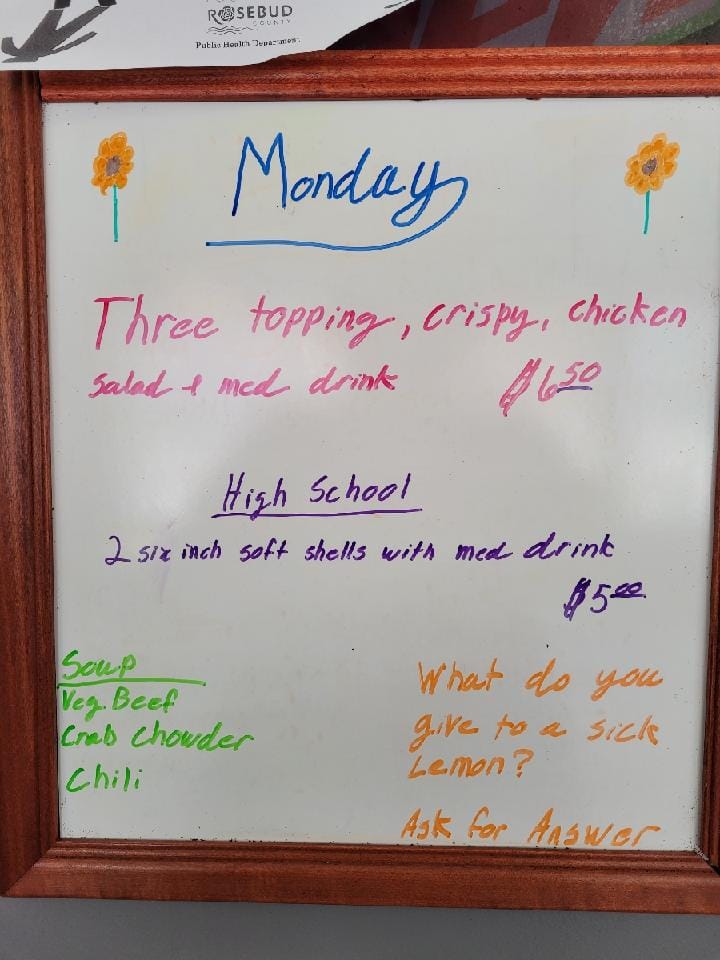 ROSEBUD
COUNTY
Public Health Department
Monday
Three topping, crispy, chicken
salad & med drink $6.50
High School
2 six inch soft shells with med drink
$5.00
Soup
Veg. Beef
Crab Chowder
Chili
What do you
give to a sick
Lemon?
Ask for Answer